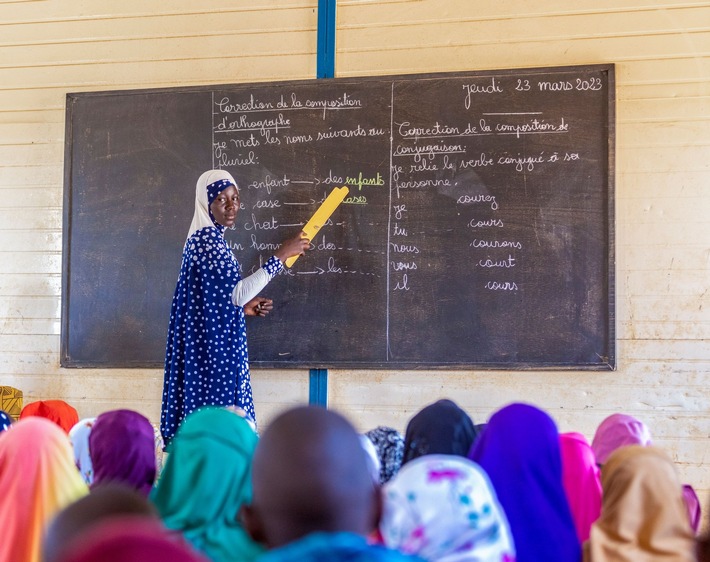 Correction de la composition
d'orthographe
je mets les noms suivants au
pluriel:
enfant → des enfants
case → cases
chat →
un hom des
→ les
jeudi 23 mars 2023
Correction de la composition de
conjugaison:
je relie le verbe conjugué à sa
personne.
je . courez
tu . cours
nous . courons
vous . court
il . cours